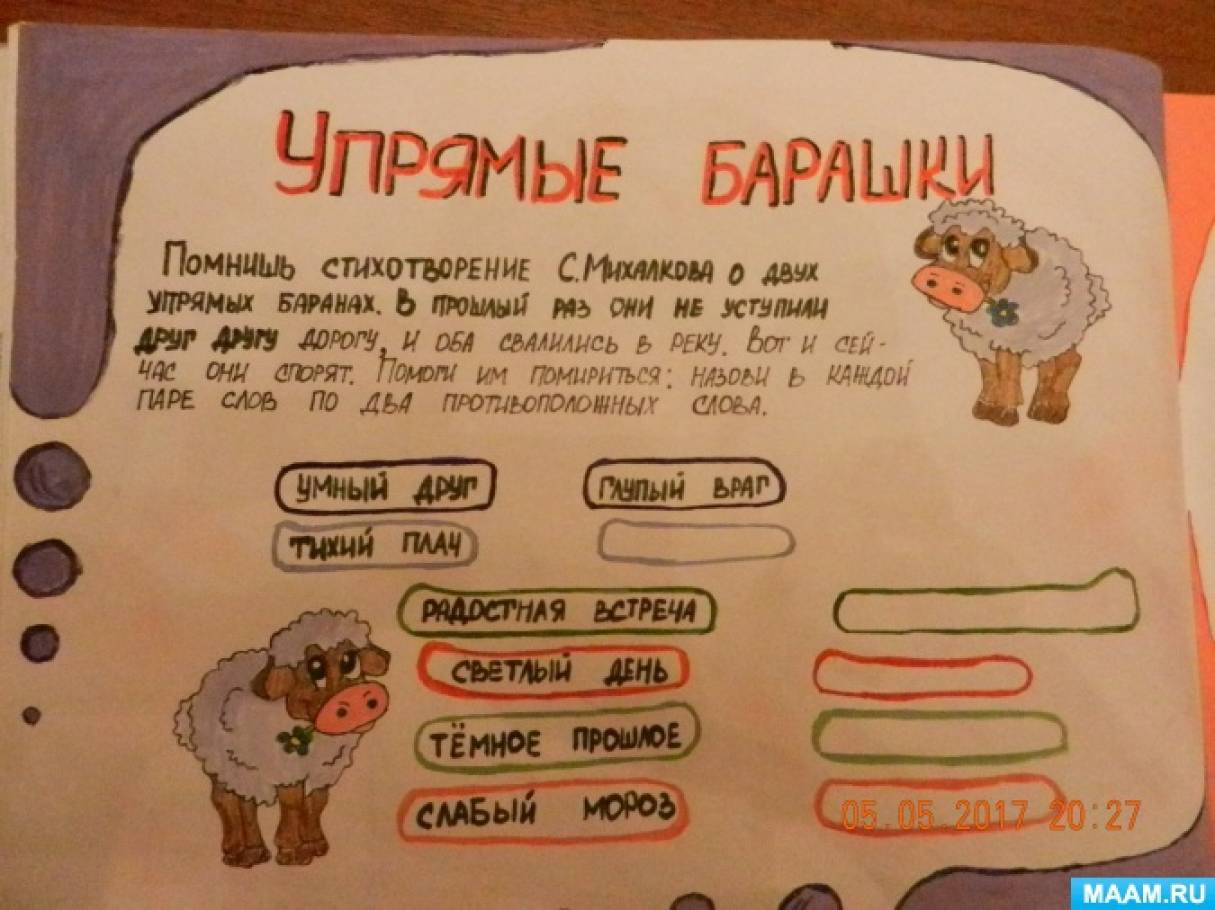 Упрямые барашки
Помнишь стихотворение С. Михалкова о двух
упрямых баранах. В прошлый раз они не уступили
друг другу дорогу, и оба свалились в реку. Вот и сей-
час они спорят. Помоги им помириться: назови в каждой
паре слов по два противоположных слова.
умный друг глупый враг
тихий плач
радостная встреча
светлый день
тёмное прошлое
слабый мороз
05.05.2017 20:27
MAAM.RU